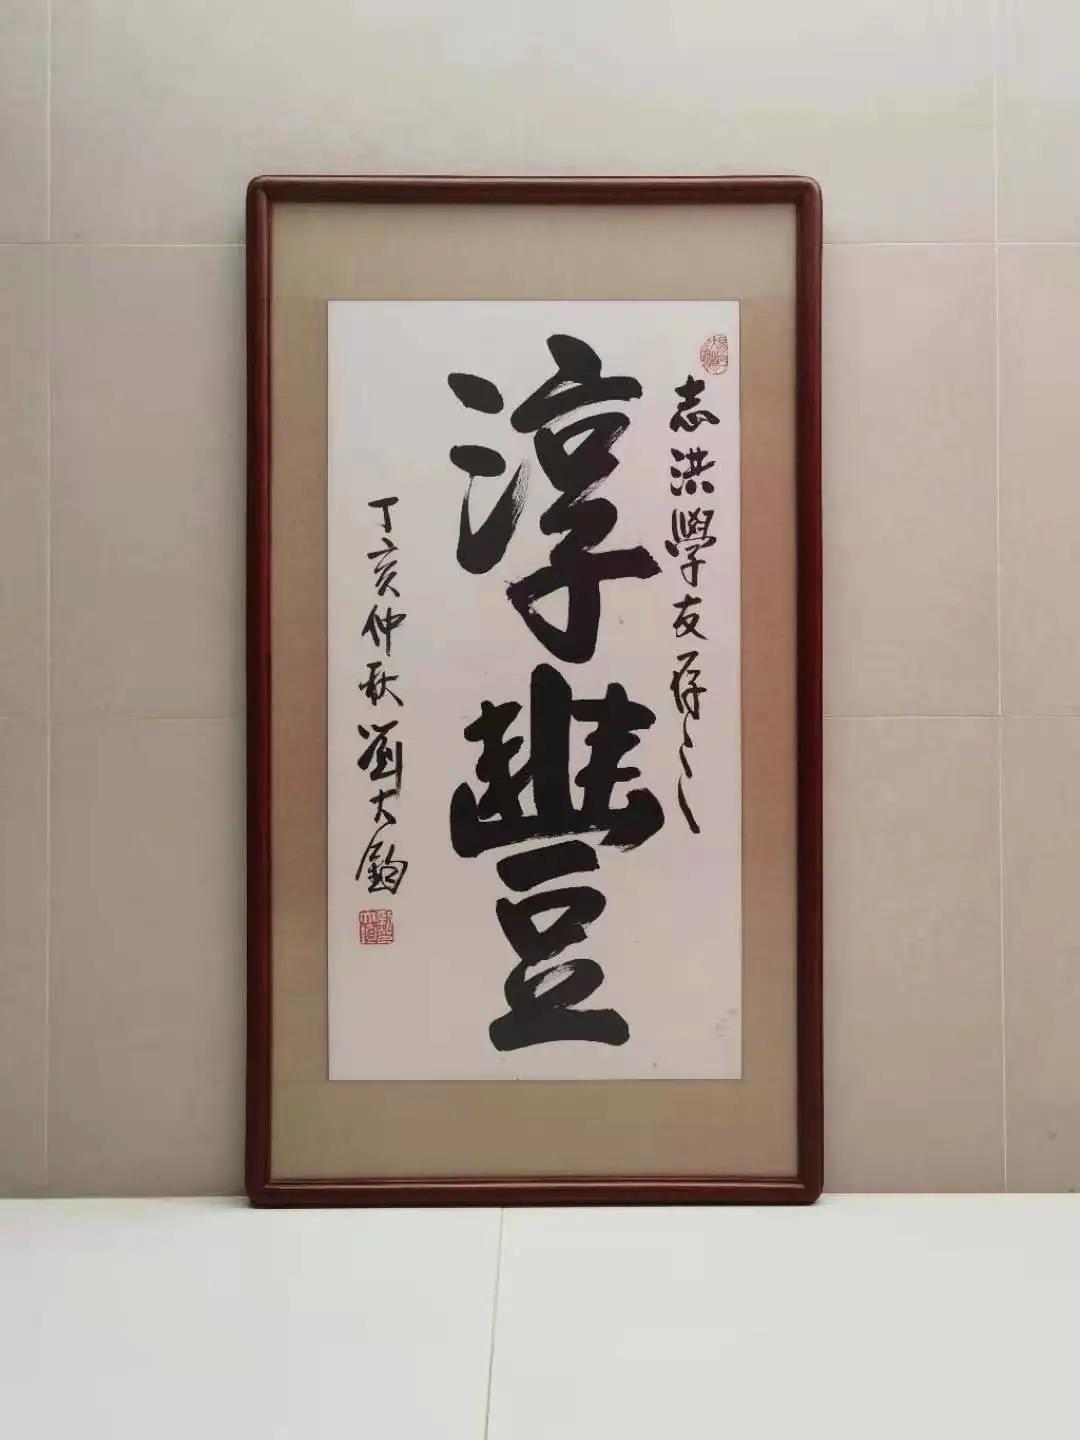 志洪學友存之
淳豐
丁亥仲秋劉大鈞